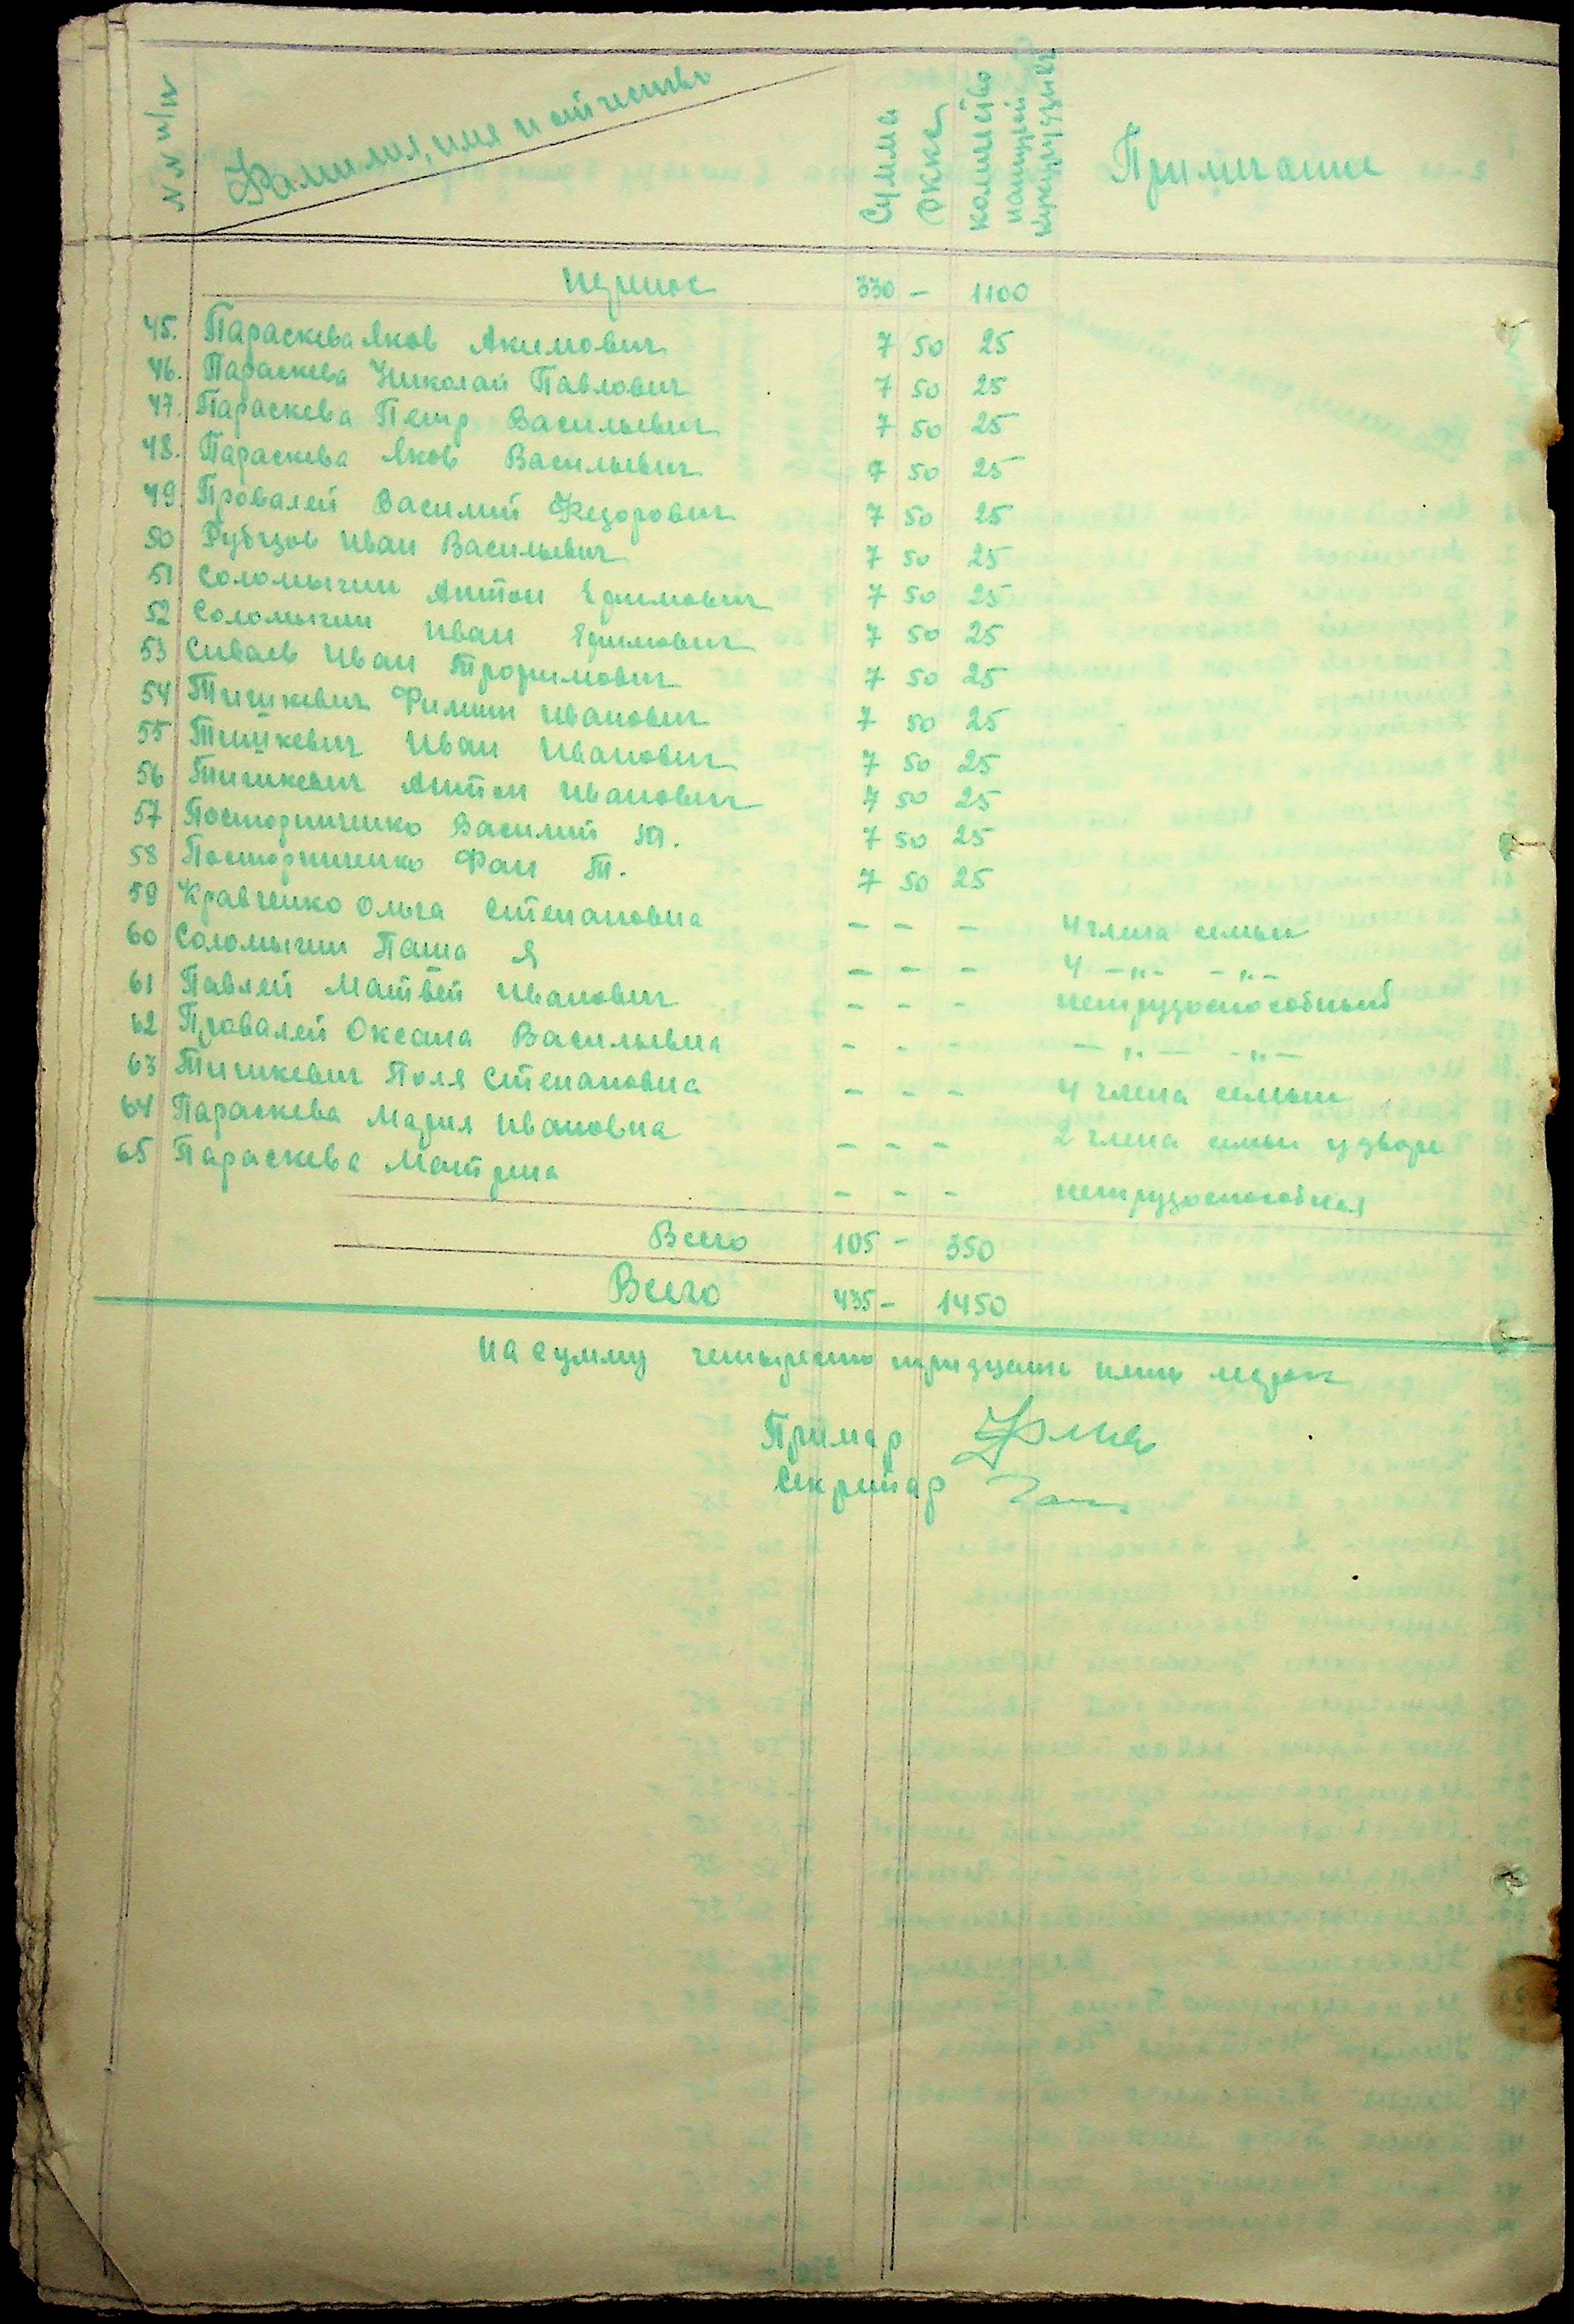 N N п/п Фамилия, имя и отчество Сумма РККС количество натурой кукурузы кг Примечание
330 - 1100
45. Параскева Яков Акимович 7 50 25
46. Параскева Николай Павлович 7 50 25
47. Параскева Петр Васильевич 7 50 25
48. Параскева Яков Васильевич 7 50 25
49. Провалей Василий Федорович 7 50 25
50 Рубцов Иван Васильевич 7 50 25
51 Соломычин Антон Ефимович 7 50 25
52 Соломычин Иван Ефимович 7 50 25
53 Сиваев Иван Трофимович 7 50 25
54 Тишкевич Филип Иванович 7 50 25
55 Тишкевич Иван Иванович 7 50 25
56 Тишкевич Антон Иванович 7 50 25
57 Василий Т. 7 50 25
58 Фан Т. 7 50 25
59 Кравченко Ольга Степановна - - - 4 члена семьи
60 Соломычин Паша Я - - - 4 -"- -"-
61 Павлей Матвей Иванович - - - нетрудоспособный
62 Провалей Оксана Васильевна - - - -"- -"-
63 Тишкевич Поля Степановна - - - 4 члена семьи
64 Параскева Мария Ивановна - - - 2 члена семьи
65 Параскева Матрина - - - нетрудоспособная
Всего 105 - 350
Всего 435 - 1450
На сумму четыреста тридцать пять марок
Примар
Секретар